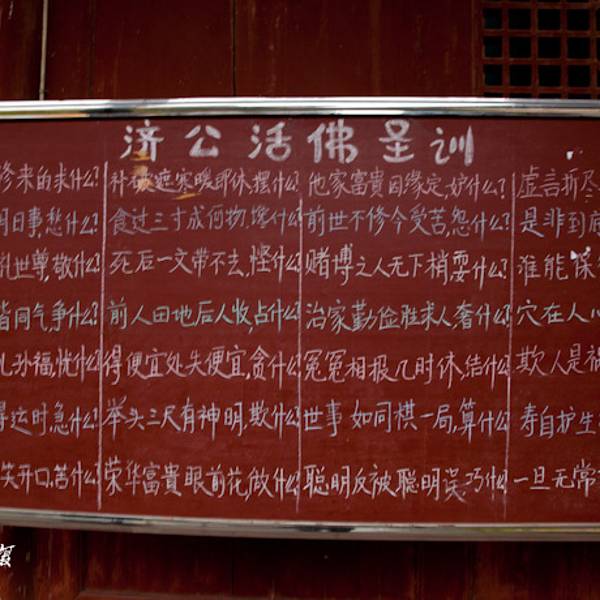 济公活佛圣训
修来的求什么?
明日事,愁什么?
礼世尊,敬什么?
皆同气,争什么?
儿孙福,忧什么?
得达时,急什么?
笑开口,苦什么?
补破遮寒暖即休,摆什么?
食过三寸成何物,馋什么?
死后一文带不去,悭什么?
前人田地后人收,占什么?
得便宜处失便宜,贪什么?
举头三尺有神明,欺什么?
荣华富贵眼前花,傲什么?
他家富贵因缘定,妒什么?
前世不修今受苦,怨什么?
赌博之人无下梢,耍什么?
治家勤俭胜求人,奢什么?
冤冤相报几时休,结什么?
世事如同棋一局,算什么?
聪明反被聪明误,巧什么?
虚言折尽
是非到
谁能保
穴在人
欺人是祸
寿自护生
一旦无常